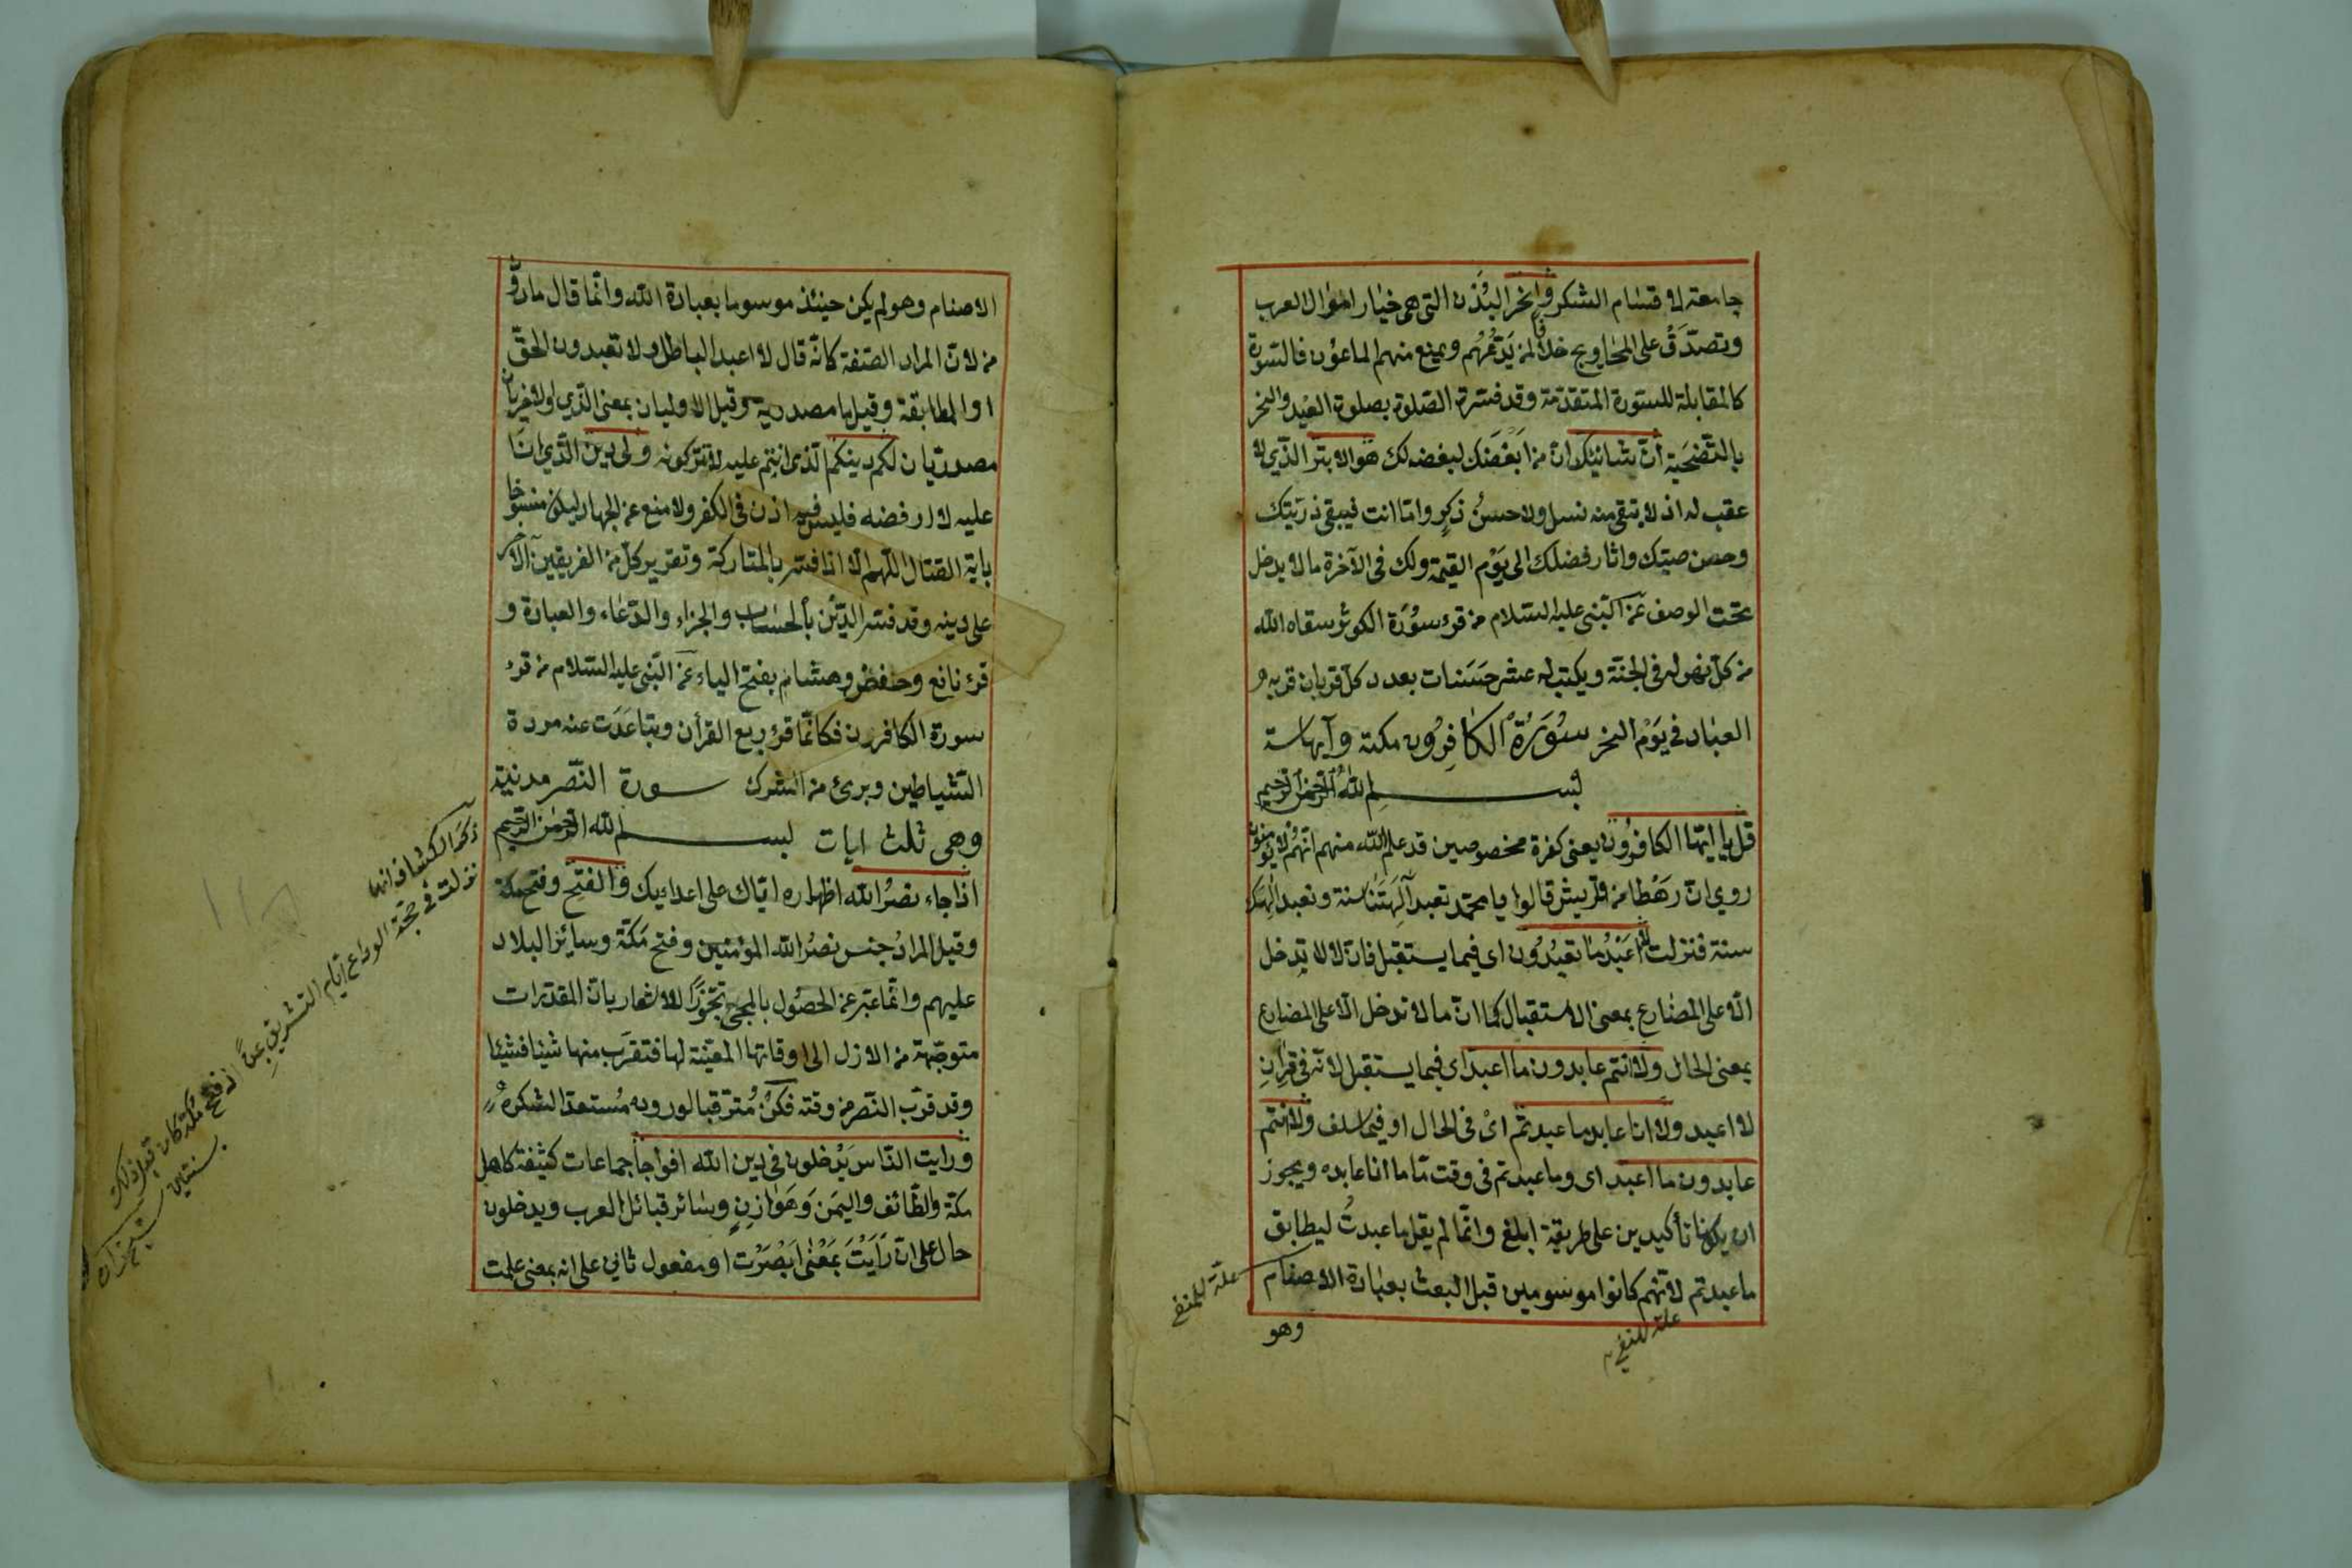 جامعة لاقسام الشكر وانحر البُدْن التى هى خيار اموال العرب
وتصدّق على المحاويج خلافا لمن يَدُعُّهُم ويمنع منهم الماعون فالسورة
كالمقابلة للسورة المتقدّمة وقد فسّرت الصّلوة بصلوة العيد والنحر
بالتّضحية انّ شانئك انّ من ابْغَضَك لبغضه لك هو الابتر الذّي لا
عقب له اذ لا يبقى منه نسل ولا حسنُ ذكرٍ وامّا انت فيبقى ذرّيّتك
وحسن صيتك واثار فضلك الى يَوْم القيمة ولك فى الآخرة ما لا يدخل
تحت الوصف عن النّبى عليه السّلام من قرء سُوْرَة الكوثر سقاه الله
من كلّ نهر له فى الجنّة ويكتب له عشر حَسَنات بعدد كلّ قربان قربه
العباد فى يَوْم النحر سُوْرَةُ الكَافِرُون مكية وآيها ستة
بسم الله الرّحمن الرّحيم
قل يا ايّها الكافرُون يعنى كفرة مخصوصين قد علم الله منهم انّهُم لا يؤمنون
روي انّ رَهْطا من قُريش قالوا يا محمّد تعبد آلِهَتَنا سنة ونعبد الهك
سنة فنزلت لا اعْبُدُ ما تعبُدُون اى فيما يستقبل فانّ لا لا تدخل
الّا على المضارع بمعنى الاستقبال كما انّ ما لا تدخل الّا على المضارع
بمعنى الحال ولا انتم عابدون ما اعبد اى فيما يستقبل لانّه فى قِرانِ
لا اعبد ولا انا عابد ما عبدتّم اىْ فى الحال او فيما سلف ولا انتم
عابدون ما اعبد اى وما عبدتم فى وقت مّا ما انا عابده ويجوز
ان يكونا تأكيدين على طريقة ابلغ وانّما لم يقل ما عبدتُ ليطابق
ما عبدتم لانّهُم كانوا موسومين قبل البعث بعبادة الاصنام
علّة للمنفى
علة للنفى
وهو
الاصنام وهو لم يكن حينئذ موسوما بعبادة الله وانّما قال ما دون
من لانّ المراد الصّفة كانّه قال لا اعبد الباطل ولا تعبدون الحقّ
او المطابقة وقيل ما مصدرية وقيل الاوليان بمعنى الذّي والاخريان
مصدريّتان لكم دينكم الّذى انتم عليه لا تتركونه ولى دين الذّي انا
عليه لا ارفضه فليس فيه اذن فى الكفر ولا منع عن الجهاد ليكون منسوخا
باية القتال اللّهم الّا اذا فسّر بالمتاركة وتقرير كلّ من الفريقين الآخر
على دينه وقد فسّر الدّين بالحساب والجزاء والدّعاء والعبادة و
قرء نافع وحفض وهشام بفتح الياء عن النّبى عليه السّلام من قرء
سورة الكافرون فكانّما قرء ربع القرأن وتباعَدَت عنه مردة
الشّياطين وبرئ من الشرك سورة النّصر مدنيّة
وهى ثلث ايات بسم الله الرّحمن الرّحيم
اذا جاء نصرُ الله اظهاره ايّاك على اعدائك والفتح وفتح مكة
وقيل المرادُ جنس نصرُ الله المؤمنين وفتح مَكّة وسايِر البلاد
عليهم وانّما عبّر عن الحصُول بالمجئ تجوّزًا للاشعار بانّ المقدّرات
متوجّهة من الازل الى اوقاتها المعيّنة لها فتقرّب منها شيئا فشيئا
وقد قرّب النّصر من وقته فكنْ مُترقّبا لوروده مُستعدّا لشكره
ورايت النّاس يَدْخلون فى دين الله افواجا جماعات كثيفة كاهل
مكّة والطّائف واليمَن وَهَوازِن وسَائر قبائل العرب ويدخلون
حال على انّ رَأيْتَ بمَعْنى ابَصْرَت او مفعول ثاني على انه بمعنى علمت
ذكر الكشاف انها
نزلت فى حجّة الوداع ايّام التشريق بمنى اذ فتح مكّة كان قبل ذلك
بسنتين